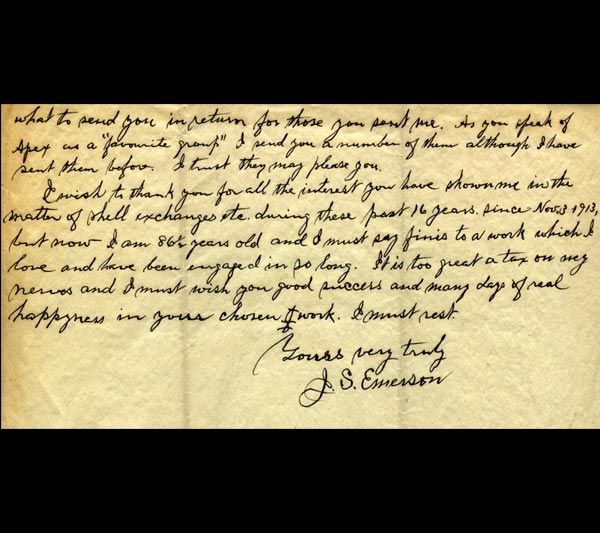 what to send you in return for those you sent me. As you speak of
Apex as a "favourite group" I send you a number of them although I have
sent them before. I trust they may please you.
I wish to thank you for all the interest you have shown me in the
matter of shell exchanges etc. during these past 16 years. since Nov. 3 1913,
but now I am 86½ years old and I must say finis to a work which I
love and have been engaged in so long. It is too great a tax on my
nerves and I must wish you good success and many days of real
happyness in your chosen work. I must rest.
Yours very truly
J. S. Emerson